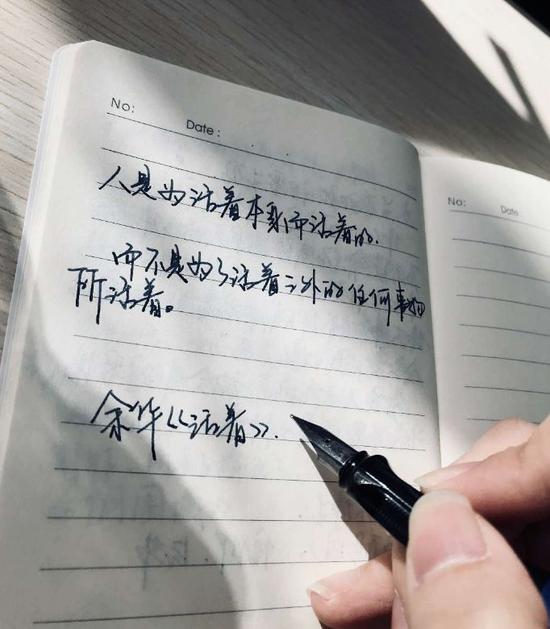 No:
Date:
人是为活着本身而活着的.
而不是为了活着之外的任何事物
所活着。
余华《活着》.
No:
Date